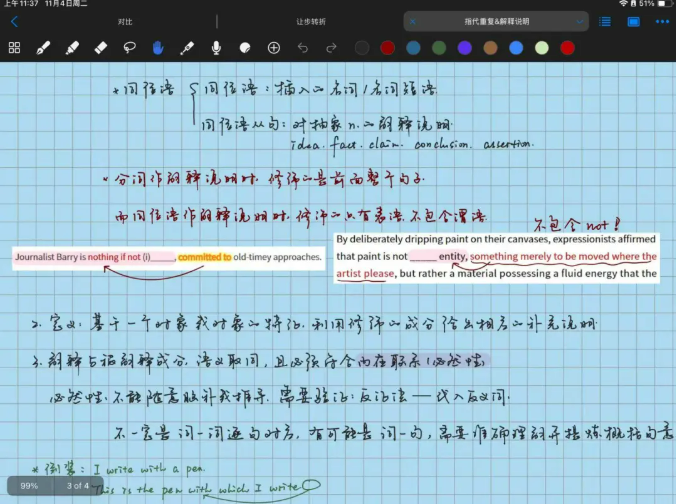 上午11:37 11月4日周二
51%
对比
让步转折
指代重复&解释说明
* 同位语 { 同位语：插入の名词/名词短语
同位语从句：对抽象n.の解释说明
idea. fact. claim. conclusion. assertion.
分词作解释说明时，修饰の是前面整个句子.
而同位语作解释说明时，修饰の只有表语，不包含谓语
不包含not！
Journalist Barry is nothing if not (i)_____, committed to old-timey approaches.
By deliberately dripping paint on their canvases, expressionists affirmed
that paint is not _____ entity, something merely to be moved where the
artist please, but rather a material possessing a fluid energy that the
2. 定义：基于一个对象或对象の特征，利用修饰の成分给出相应の补充说明.
3. 解释与被解释成分，语义取同，且必须存在内在联系/必然性
必然性：不能随意脑补或推导. 需要验证：反证法——代入反义词.
不一定是词-词逐句对应，有可能是词-句，需要准确理解并提炼概括句意
* 倒装：I write with a pen.
This is the pen with which I write
99%
3 of 4